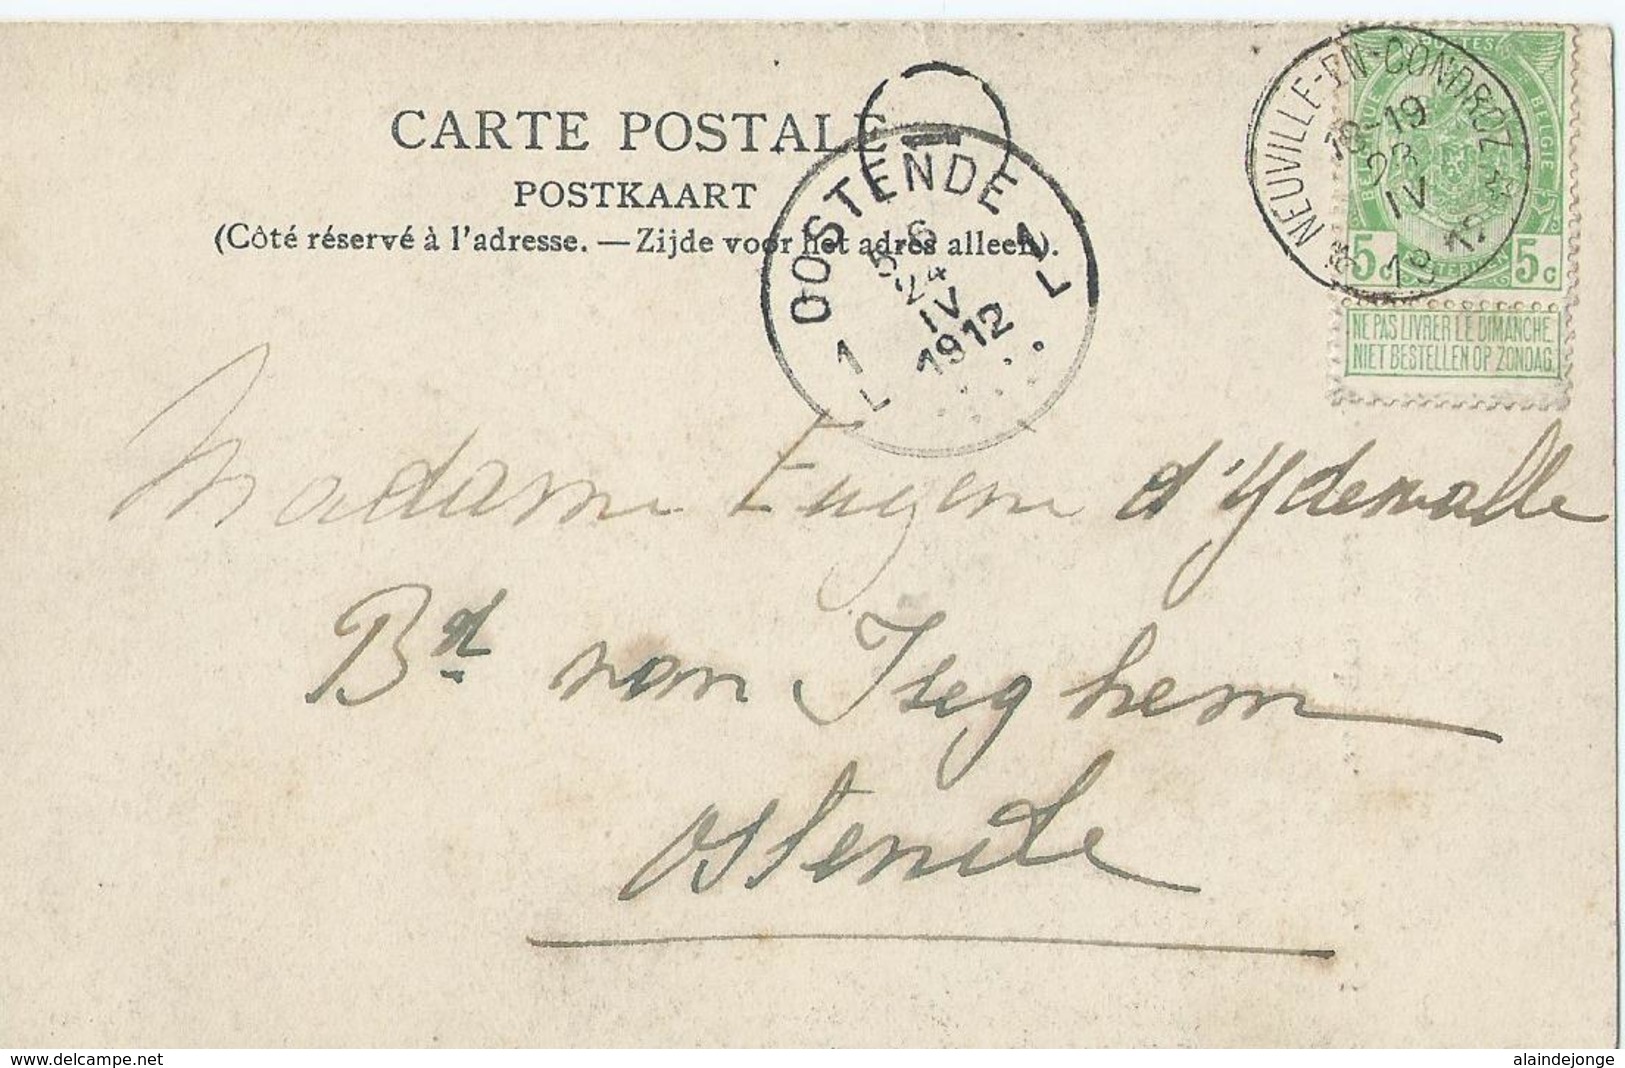 CARTE POSTALE
POSTKAART
(Côté réservé à l'adresse. — Zijde voor het adres alleen).
OOSTENDE
1L 1L
24
IV
1912
NEUVILLE-EN-CONDROZ
18-19
23
IV
1912
POSTES
BELGIQUE
BELGIË
5c 5c
NE PAS LIVRER LE DIMANCHE
NIET BESTELLEN OP ZONDAG.
Madame Eugène d'Ydewalle
Bd van Iseghem
Ostende
www.delcampe.net
alaindejonge